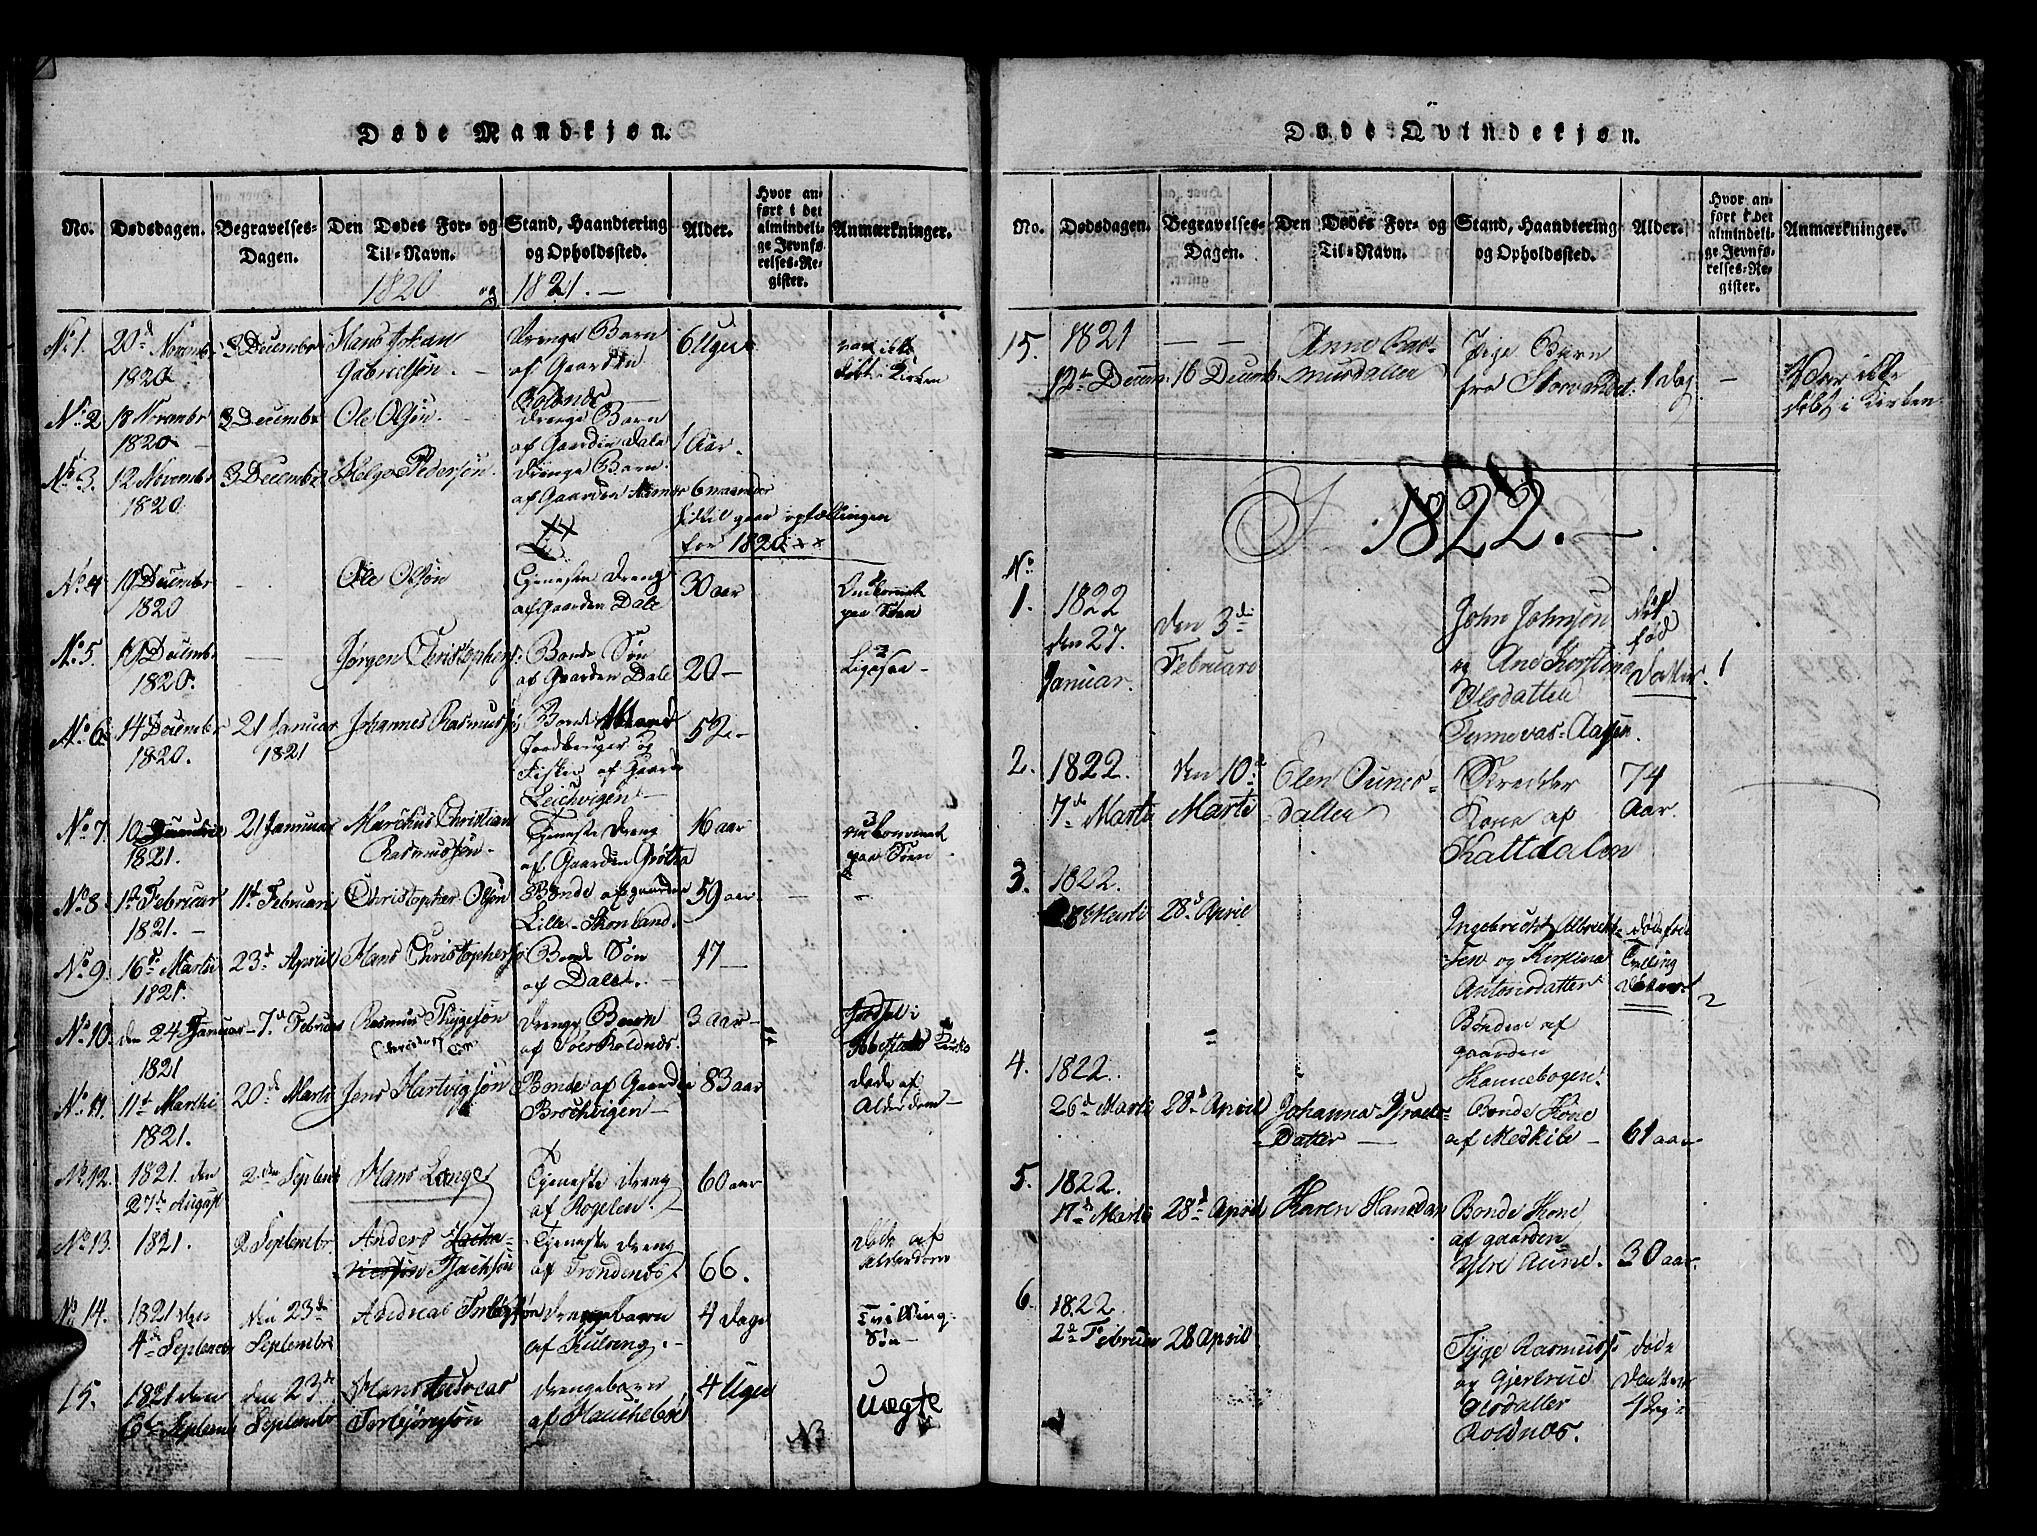 Døde Mandkjøn.
No. Dødsdagen. Begravelses-Dagen. Den Dødes For- og Til-Navn. Stand, Haandtering og Opholdssted. Alder. Hvor anført i det almindelige Jevnførelses-Register. Anmærkninger.
1820 og 1821.
No 1. 20d Novembr 1820 3 Decembr Hans Johan Gabrielsøn. Drenge Barn af Gaarden Rolnæs 6 Uger var ikke døbt i Kirken
No. 2 18 Novembr 1820 3 Decembr Ole Olsøn. Drenge Barn af Gaarden Dale 1 Aar.
No. 3. 12 Novembr 1820 3 Decembr Helge Pedersøn. Drenge Barn af Gaarden 6 maaneder
hidtil gaar optællingen
for 1820
No. 4 19 Decembr 1820 - Ole Olsøn Tjeneste Dreng af Gaarden Dale 30 aar Omkommet paa Søen
No. 5. 19 Decembr 1820. - Jørgen Christophers: Bonde Søn af Gaarden Dale 20 - Ligesaa -
No. 6. 14 Decembr 1820. 21 Januar 1821 Johannes Rasmussøn Bonde Mand Jordbruger og Fisker af Gaarden Leichvigen 52 -
No. 7. 10 Januari 1821. 21 Januar Marchus Christian Rasmussøn. Tjeneste Dreng af Gaarden Grøtta 16 aar omkommet paa Søen
No. 8. 1d Februar 1821. - 11t Februari Christopher Olsøn Bonde af gaarden Lille-Skonland. 59 aar.
No. 9. 16d Marti 1821. 23d April Hans Christophersø Bonde Søn af Dale. 17 -
No. 10. den 24 Januar 1821 7d Februar Rasmus Thygesøn Drenge Barn af Roldnes. 3 aar - Jordfæl i Ibbestads Kirke
No. 11. 11t Marthi 1821. 20d Marti Jens Hartvigsøn Bonde af Gaarden Brochvigen - 83 aar døde af Alderdom -
No. 12. 1821. den 27de August 2den Septembr Hans Lange Tjeneste Dreng af Rogelen. 60 aar
No. 13. 1821. 2 Septembr Anders Jachsøn Tjeneste Dreng af Trondenæs. 66. døde af alderdom
No 14. 1821 den 4de Septembr den 23de Septembr Andreas Torbjørnsøn Drengebarn af Kulseng. - 4 dage Tvilling-Søn -
15. 1821 den 6te Septemb den 23de Septembr Hans Andreas Torbjørnsøn Drengebarn af Hauckebøe 4 Uger Uægte
Døde Qvindekjøn.
No. Dødsdagen. Begravelses-Dagen. Den Dødes For- og Til-Navn. Stand, Haandtering og Opholdssted. Alder. Hvor anført i det almindelige Jevnførelses-Register. Anmærkninger.
15. 1821 12te Decem. 16 Decemb. Anne Rasmusdatter Pige Barn fra 1 dag - Var ikke døbt i Kirken
I 1822. -
No
1. 1822 den 27. Januar. den 3de Februari John Johnsøn og Ane Kirstina Olsdatter død fød datter. 1
2. 1822. 7de Marti den 10de Marti Elen Sunesdatter Skredder Kone af Kattdalen 74 Aar.
3. 1822. 28 Marti 28d April Ingebricht Albrechtsen og Kirstina Antonsdatter Bønder af gaarden Hannebogen. dødsfød Tvilling døtre 2
4. 1822. 26d Marti 28d April Johanna Datter - Bonde Kone af Meskile - 61 aar
5. 1822. 17d Marti 28d April Karen Hansdat Bonde Kone af gaarden Ytre Aune. 30 aar.
6. 1822. 2de Februar 28 April Tyge Rasmuss: og Gjertrud Olsdatter Roldnes. døde datter 4 dag